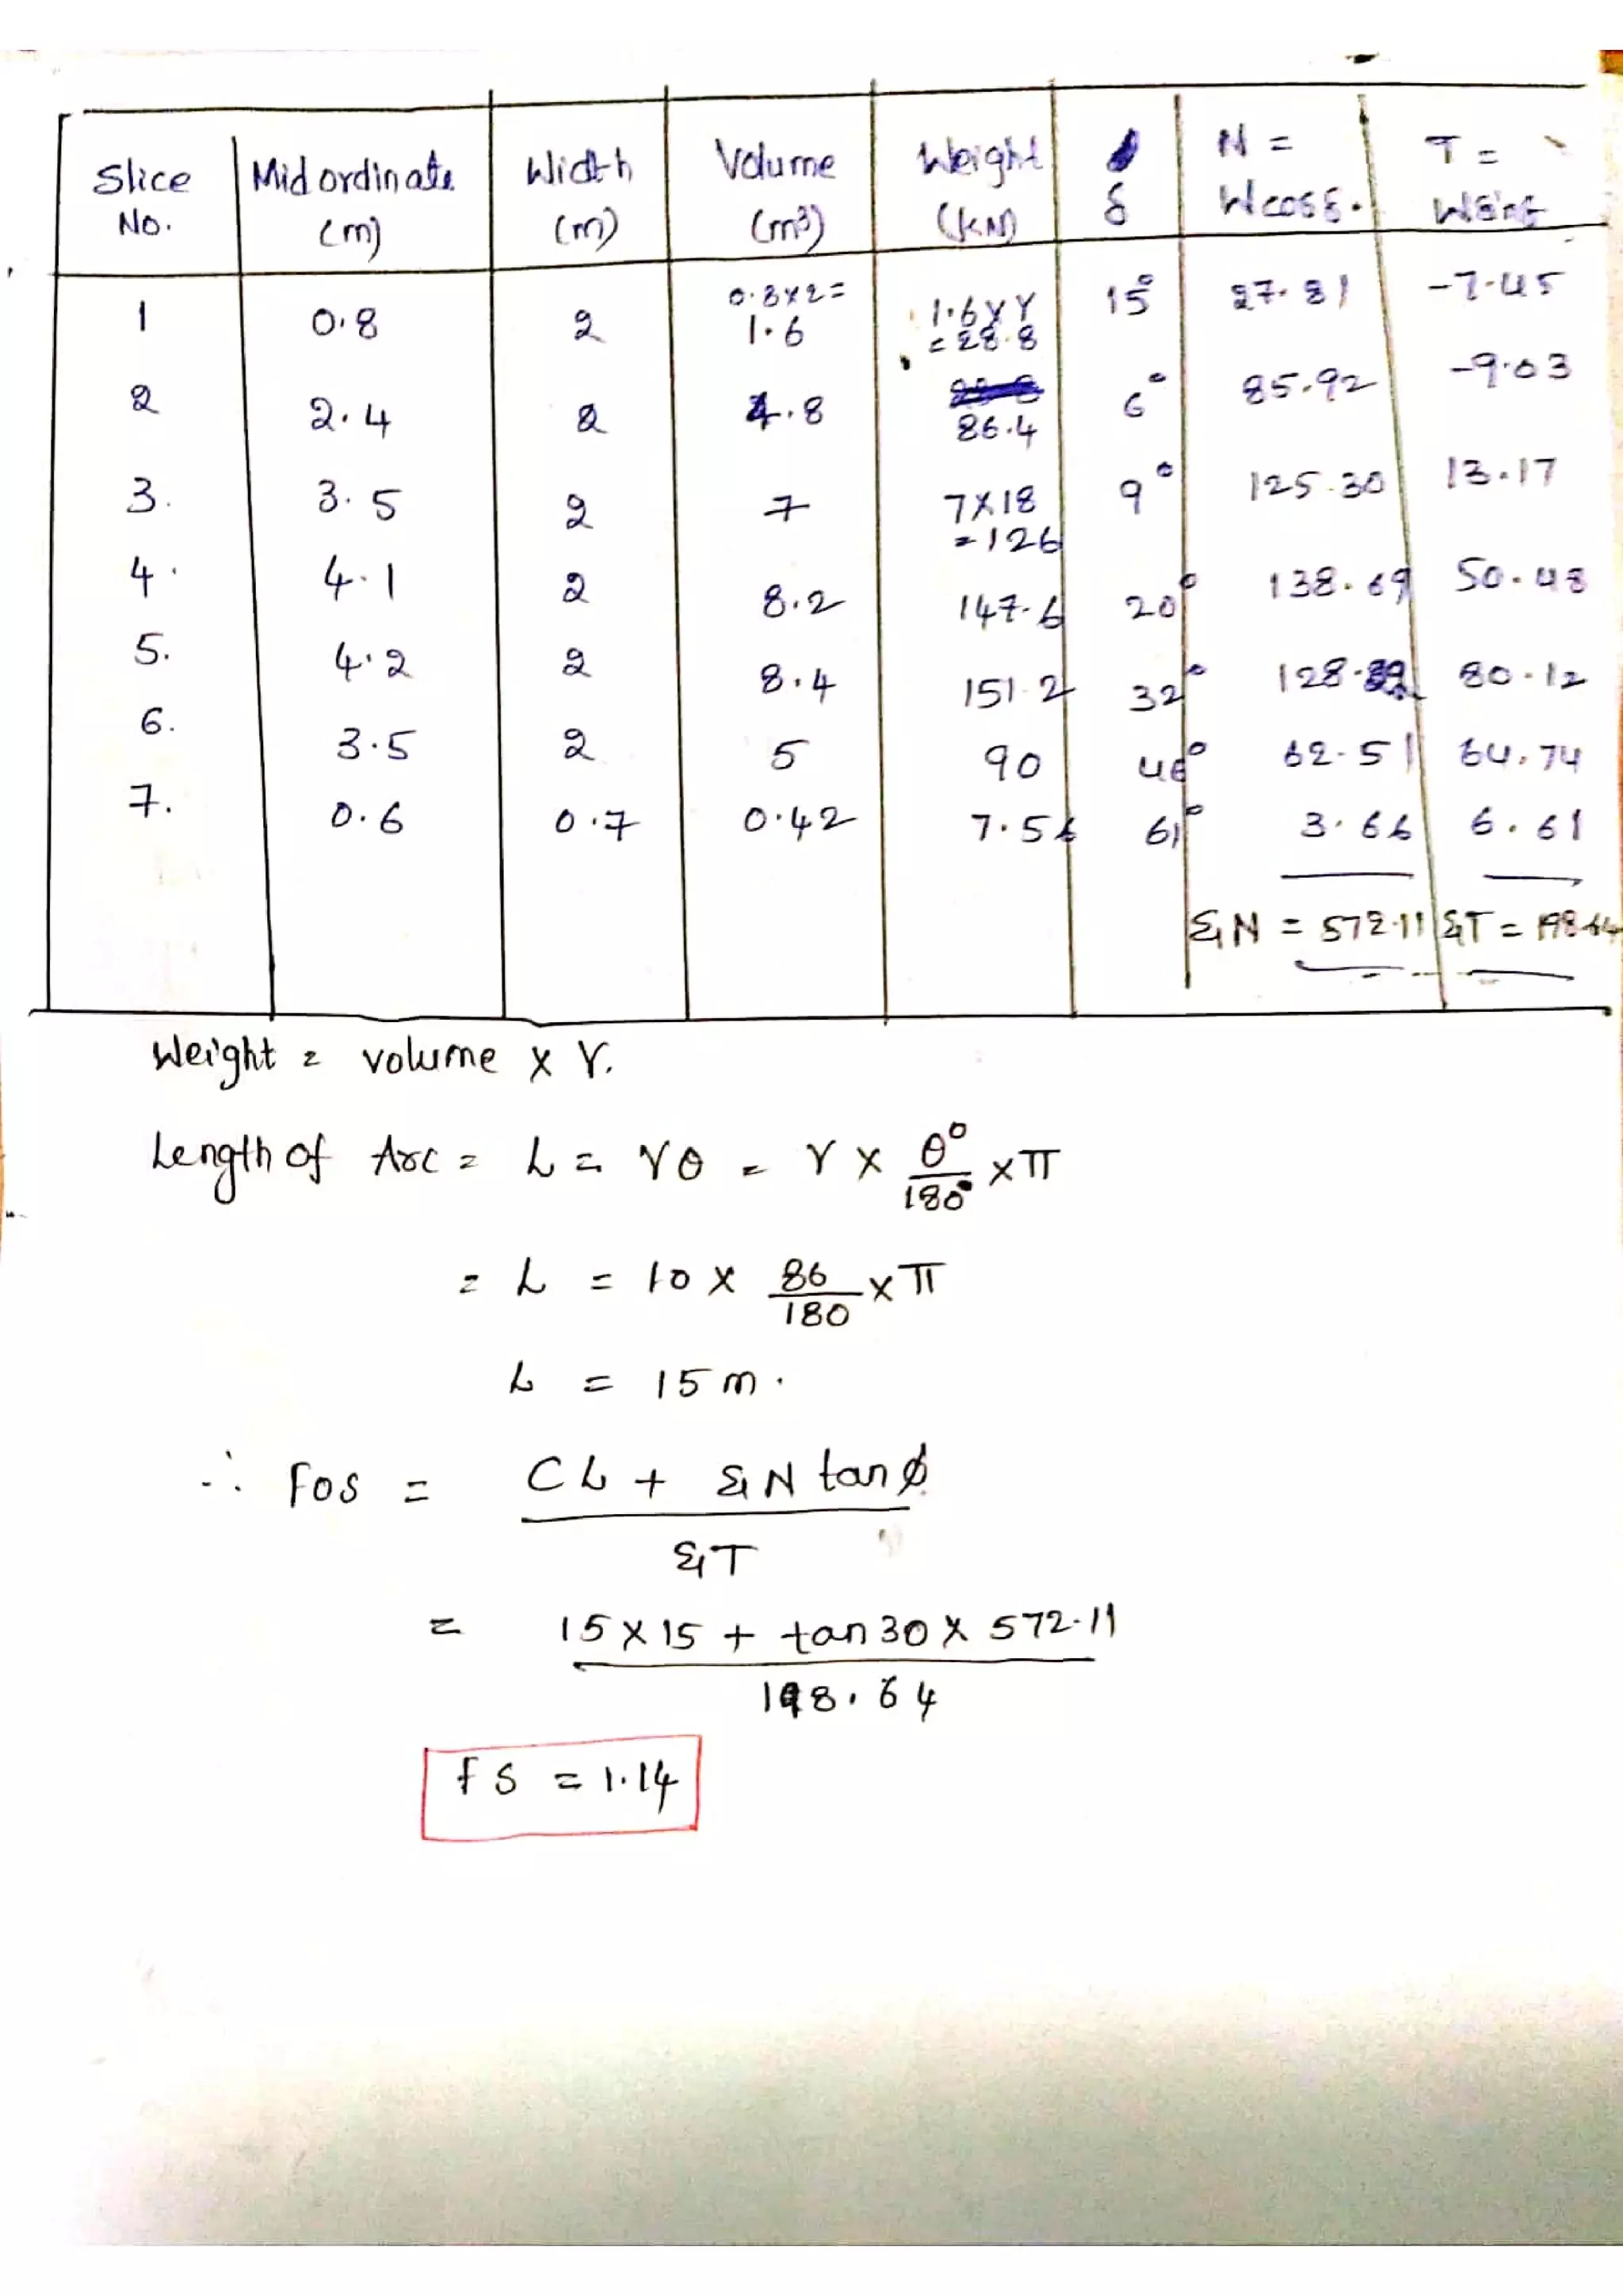 Slice No. Mid ordinate (m) Width (m) Volume (m³) Weight (kN) δ N = Wcosδ. T = Wsinδ
1 0.8 2 0.8×2= 1.6 1.6×γ = 28.8 15° 27.81 -7.45
2 2.4 2 4.8 86.4 6° 85.92 -9.03
3. 3.5 2 7 7×18 =126 9° 125.30 13.17
4. 4.1 2 8.2 147.6 20° 138.69 50.48
5. 4.2 2 8.4 151.2 32° 128.22 80.12
6. 3.5 2 5 90 46° 62.51 64.74
7. 0.6 0.7 0.42 7.56 61° 3.66 6.61
ΣN = 572.11 ΣT = 198.64
Weight = volume × γ.
Length of Arc = L = rθ = r × θ°/180° × π
= L = 10 × 86/180 × π
L = 15 m.
∴ FOS = CL + ΣN tanϕ / ΣT
= 15 × 15 + tan 30 × 572.11 / 198.64
FS = 1.14